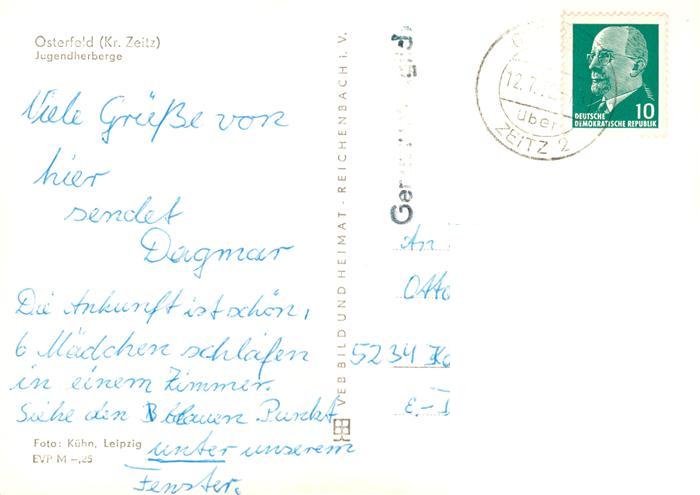 Osterfeld (Kr. Zeitz)
Jugendherberge
Viele Grüße von
hier
sendet
Dagmar
Die Ankunft ist schön,
6 Mädchen schlafen
in einem Zimmer.
Siehe den blauen Punkt
unter unserem
Fenster.
Foto: Kühn, Leipzig
EVP M -,25
VEB BILD UND HEIMAT · REICHENBACH i. V.
12.7.
über
ZEITZ 2
10
DEUTSCHE
DEMOKRATISCHE REPUBLIK
An
Otto
5234